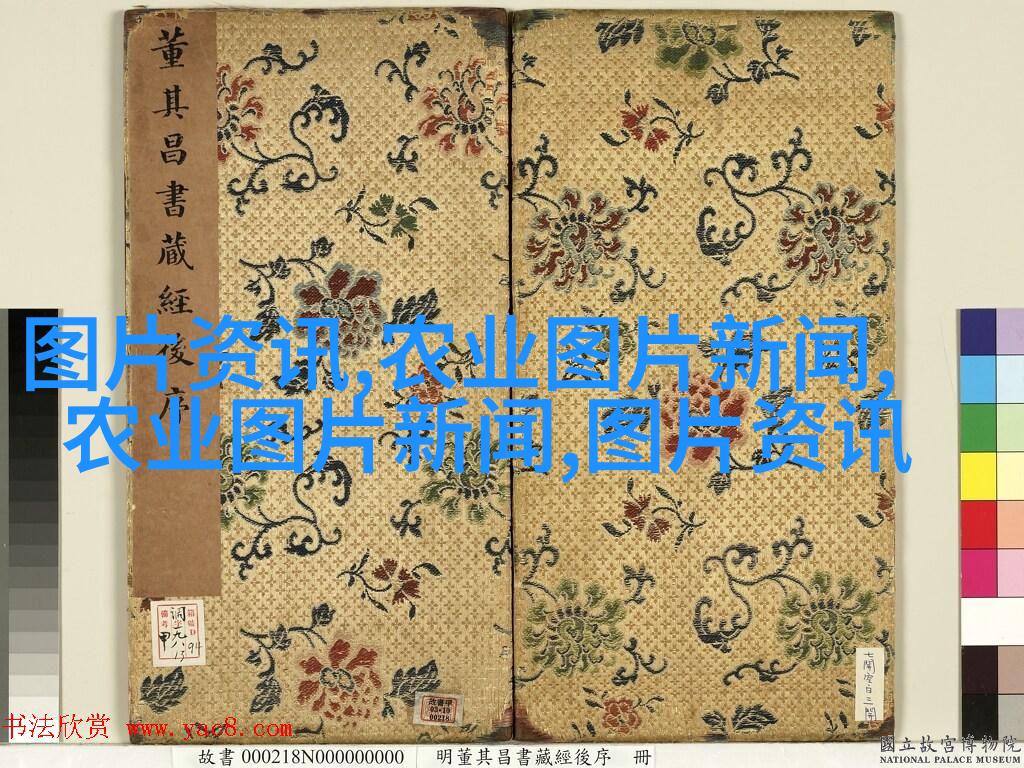 董其昌書藏經後序
图片资讯,农业图片新闻,
农业图片新闻,图片资讯
故書甲
03•10
00218
七開空白三開
书法欣赏 www.yac8.com
故書 000218N000000000
明董其昌書藏經後序 冊
國立故宮博物院
NATIONAL PALACE MUSEUM